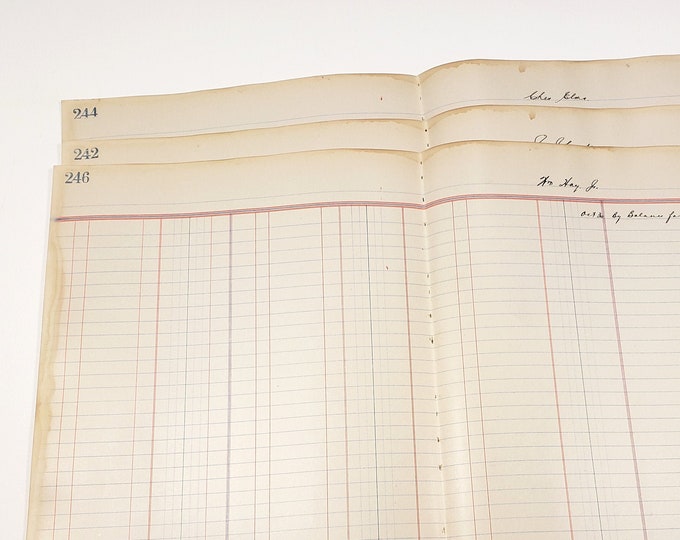 244
Chas
242
246
Wm Hay Jr.
Oct 30 By Balance